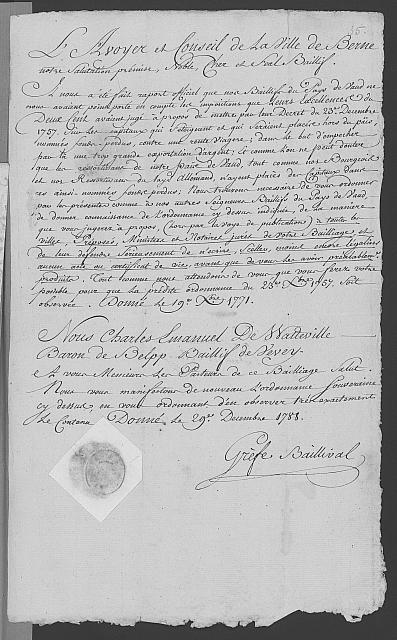 L'Avoyer et Conseil de La Ville de Berne
notre Salutation prémise, Noble, Cher et Feal Baillif.
Il nous a été fait raport officiel que nos Baillifs du Pays de Vaud ne
nous avaient point porté en compte les impositions que Leurs Excellences du
Deux Cent avaient jugé à propos de mettre par leur Decret du 23e Decembre
1757. Sur les capitaux qui s'éteignent et qui seraient placés hors du païs,
nommés fonds perdus, contre une rente viagere; dans le but d'empecher
par là une trop grande exportation d'argent; et comme Lon ne peut douter
que les ressortissans de notre païs de Vaud, tout comme nos Bourgeois
et nos Ressortissans du Pays allemand, n'ayent placés des Capitaux dans
ces ainsi nommés fonds perdus; Nous trouvons necessaire de vous ordonner
par les presentes comme à nos autres Seigneurs Baillifs du Pays de Vaud
de donner connaissance de L'ordonnance cy dessus indiquée, de la maniere
que vous jugerez à propos, (hors par la voye de publication) à toutes les
villes, Préposés, Ministres et Notaires jurés de votre Bailliage; et
de leur défendre Serieusement de n'ecrire, Sceller, moins encore legaliser
aucun acte ou certificat de vie, avant que de vous les avoir préalablemt
produits. Tout comme nous attendons de vous que vous ferez votre
possible pour que la prédite ordonnance du 23e Xbre 1757. Soit
observée. Donné Le 19e Xbre 1771.
Nous Charles Emanuel De Watteville
Baron de Belpp Baillif de Vevey
A vous Messieurs Les Pasteurs de ce Bailliage Salut.
Nous vous manifestons de nouveau L'ordonnance Souveraine
cy dessus, en vous ordonnant d'en observer très exactement
Le Contenu. Donné, Le 29e Decembre 1788.
Greffe Baillival